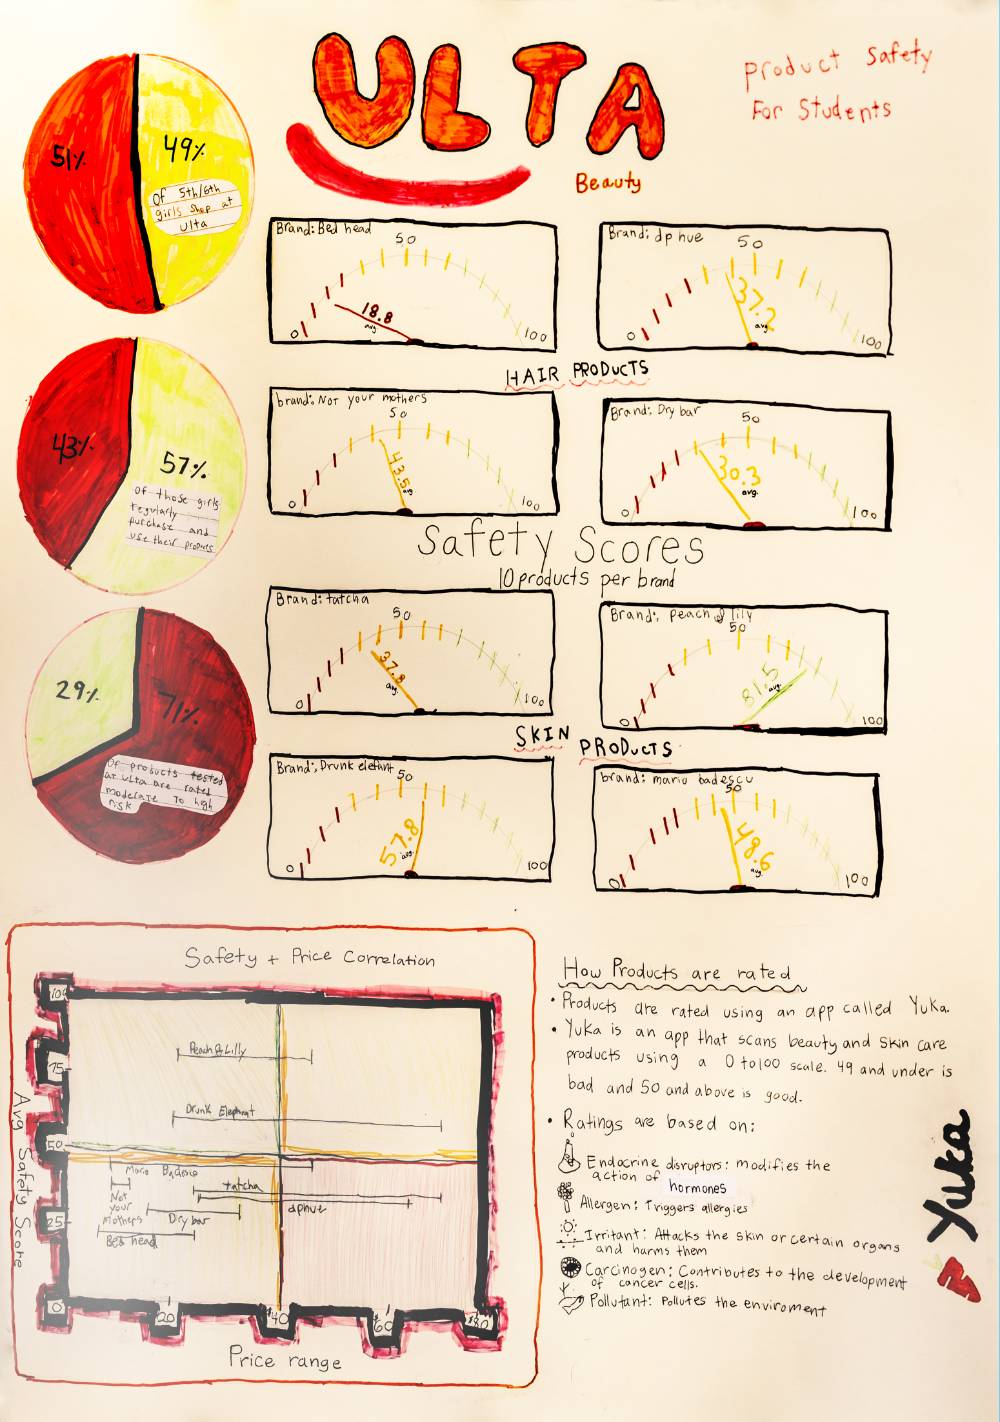 ULTA
Beauty
Product Safety
For Students
51%
49%
Of 5th/6th
girls shop at
Ulta
43%
57%
Of those girls
regularly
purchase and
use their products
29%
71%
Of products tested
at ulta are rated
moderate to high
risk
Brand: Bed head
50
18.8
avg.
0
100
Brand: dp hue
50
37.2
avg.
0
100
HAIR PRODUCTS
brand: Not your mothers
50
43.5
avg.
0
100
Brand: Dry bar
50
30.3
avg.
0
100
Safety Scores
10 products per brand
Brand: tatcha
50
37.8
avg.
0
100
Brand: peach & lily
50
81.5
avg.
0
100
SKIN PRODUCTS
Brand: Drunk elefant
50
57.8
avg.
0
100
brand: mario badescu
50
48.6
avg.
0
100
Safety + Price Correlation
Avg Safety Score
100
75
50
25
0
Peach & Lilly
Drunk Elephant
Mario Badesio
tatcha
Not
your
mothers
Dry bar
dphue
Bed head
20
$40
$60
$80
Price range
How Products are rated
• Products are rated using an app called Yuka.
• Yuka is an app that scans beauty and skin care
products using a 0 to 100 scale. 49 and under is
bad and 50 and above is good.
• Ratings are based on:
Endocrine disruptors: modifies the
action of hormones
Allergen: Triggers allergies
Irritant: Attacks the skin or certain organs
and harms them
Carcinogen: Contributes to the development
of cancer cells.
Pollutant: Pollutes the enviroment
Yuka